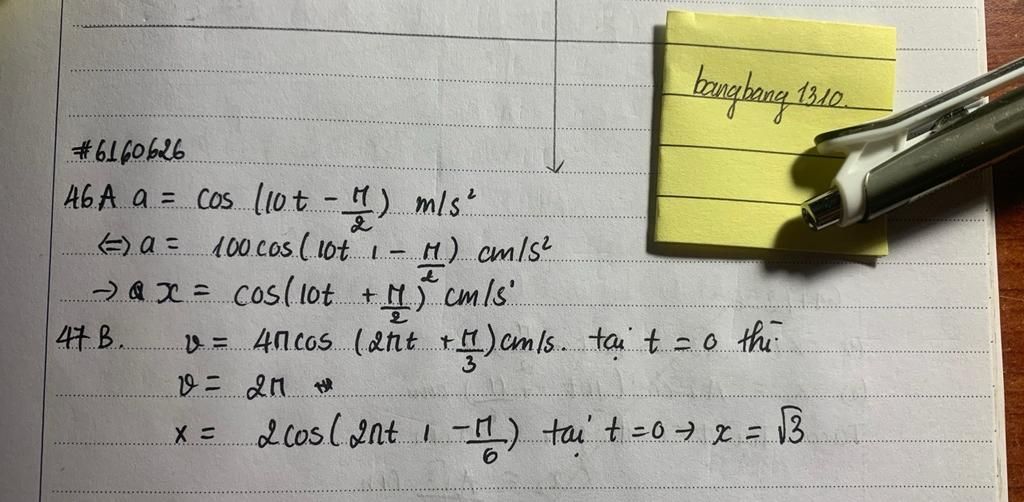 bangbang 1310.
#6160626
46A a = cos (10t - π/2) m/s²
<=> a = 100cos(10t , - π/2) cm/s²
→ x = cos(10t + π/2) cm/s'
47 B. v = 4πcos (2πt + π/3) cm/s. tại t = 0 thì
v = 2π
x = 2cos(2πt , -π/6) tại t=0 → x = √3